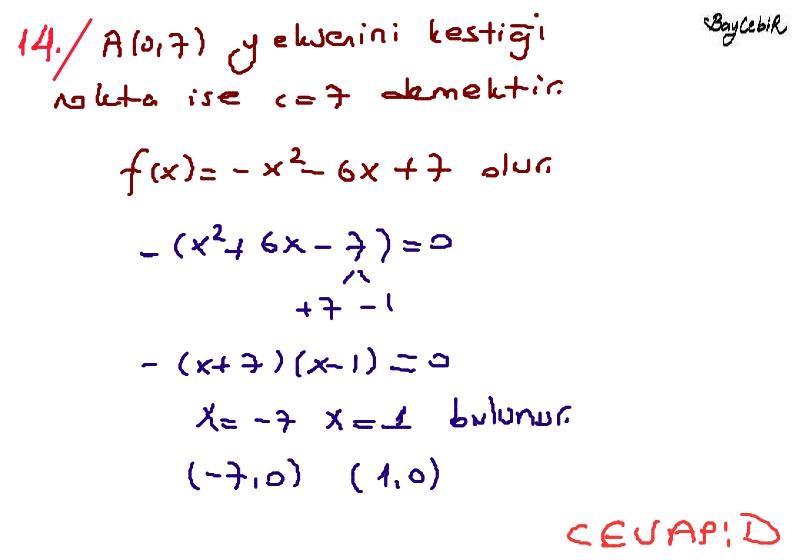 BayCebiR
14./ A(0,7) y eksenini kestiği
nokta ise c=7 demektir.
f(x)= -x²-6x+7 olur.
-(x²+6x-7)=0
+7 -1
-(x+7)(x-1)=0
x=-7 x=1 bulunur.
(-7,0) (1,0)
CEVAP:D